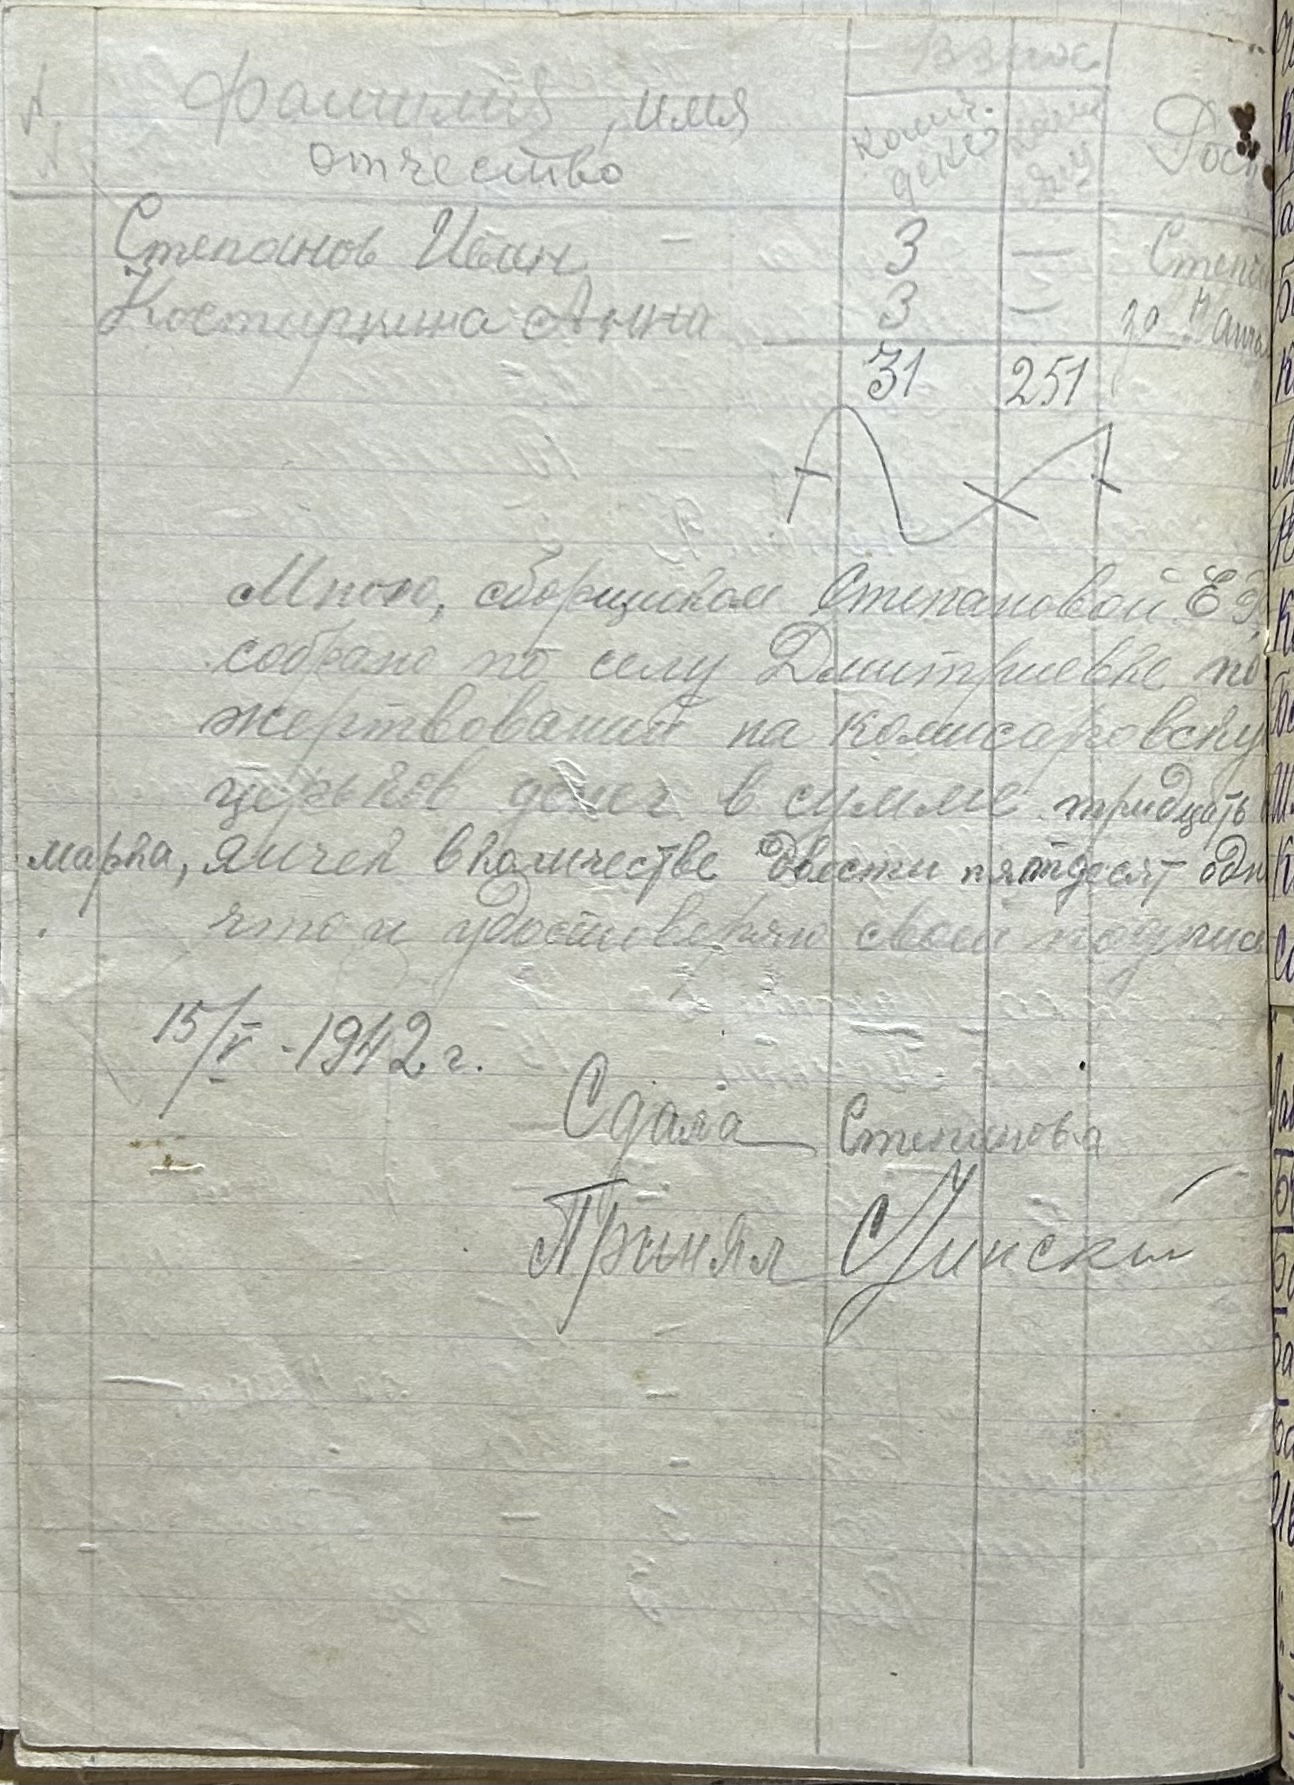 Взнос
№ Фамилия, имя
отчество
колич. денег
колич яиц
Рос
Степанов Иван — 3 — Степа
Костыркина Анна 3 — за
31 251
Мною, сборщиком Степановой Е
собрано по селу Дмитриевке по
жертвований на Комисаровску
церьков денег в сумме тридцать
марка, яичек в количестве двести пятдесят одн
что и удостоверяю своей подпис
15/V - 1942 г.
Сдала Степанова
Принял